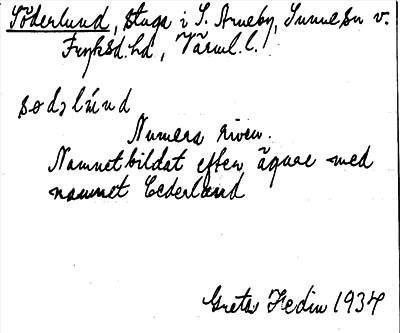 Söderlund, stuga i S. Arneby, Sunne sn v.
Fryksd. hd, Värml. l.
sødəlúnd
Numera riven.
Namnet bildat efter ägare med
namnet Cederlund
Greta Hedin 1934